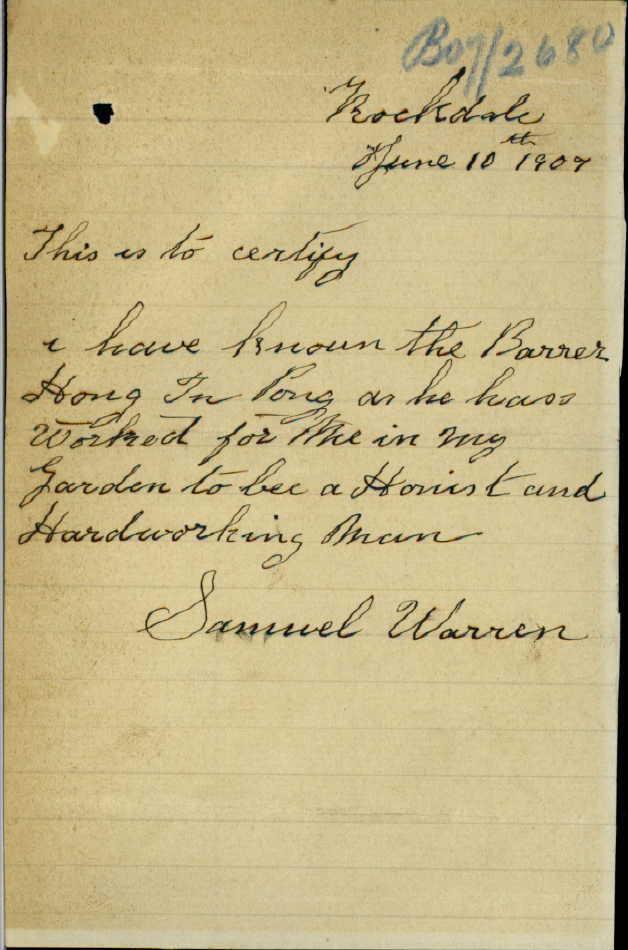 B07/2680
Rockdale
June 10th 1907
This is to certify
i haveknoun the Barrer
Hong In Pong as he hass
Worked for Me in my
Garden to bee a Honist and
Hardworking Man
Samuel Warren